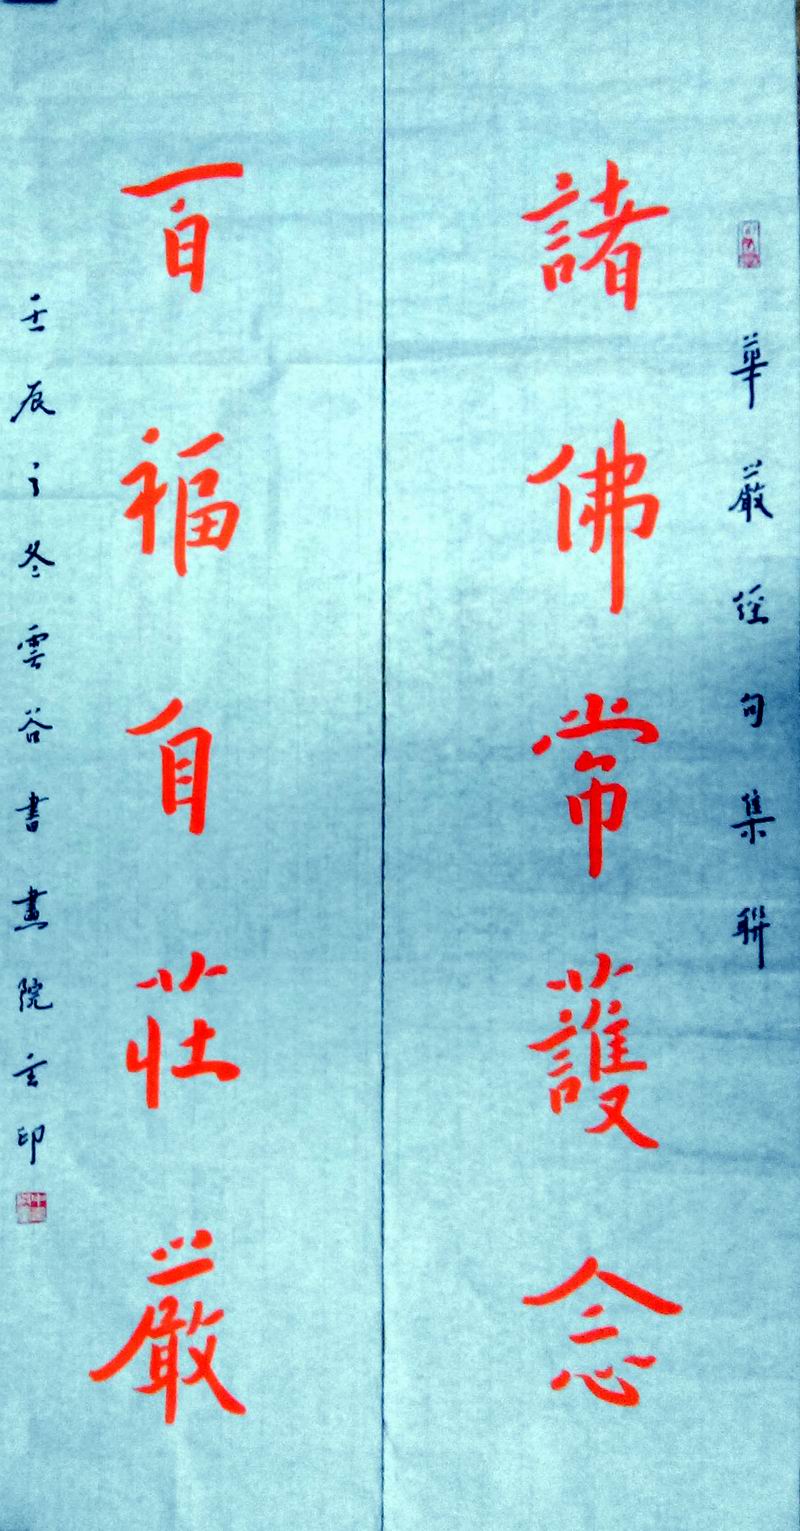 華嚴經句集聯
諸佛常護念
百福自莊嚴
壬辰之冬雲谷書畫院玄印